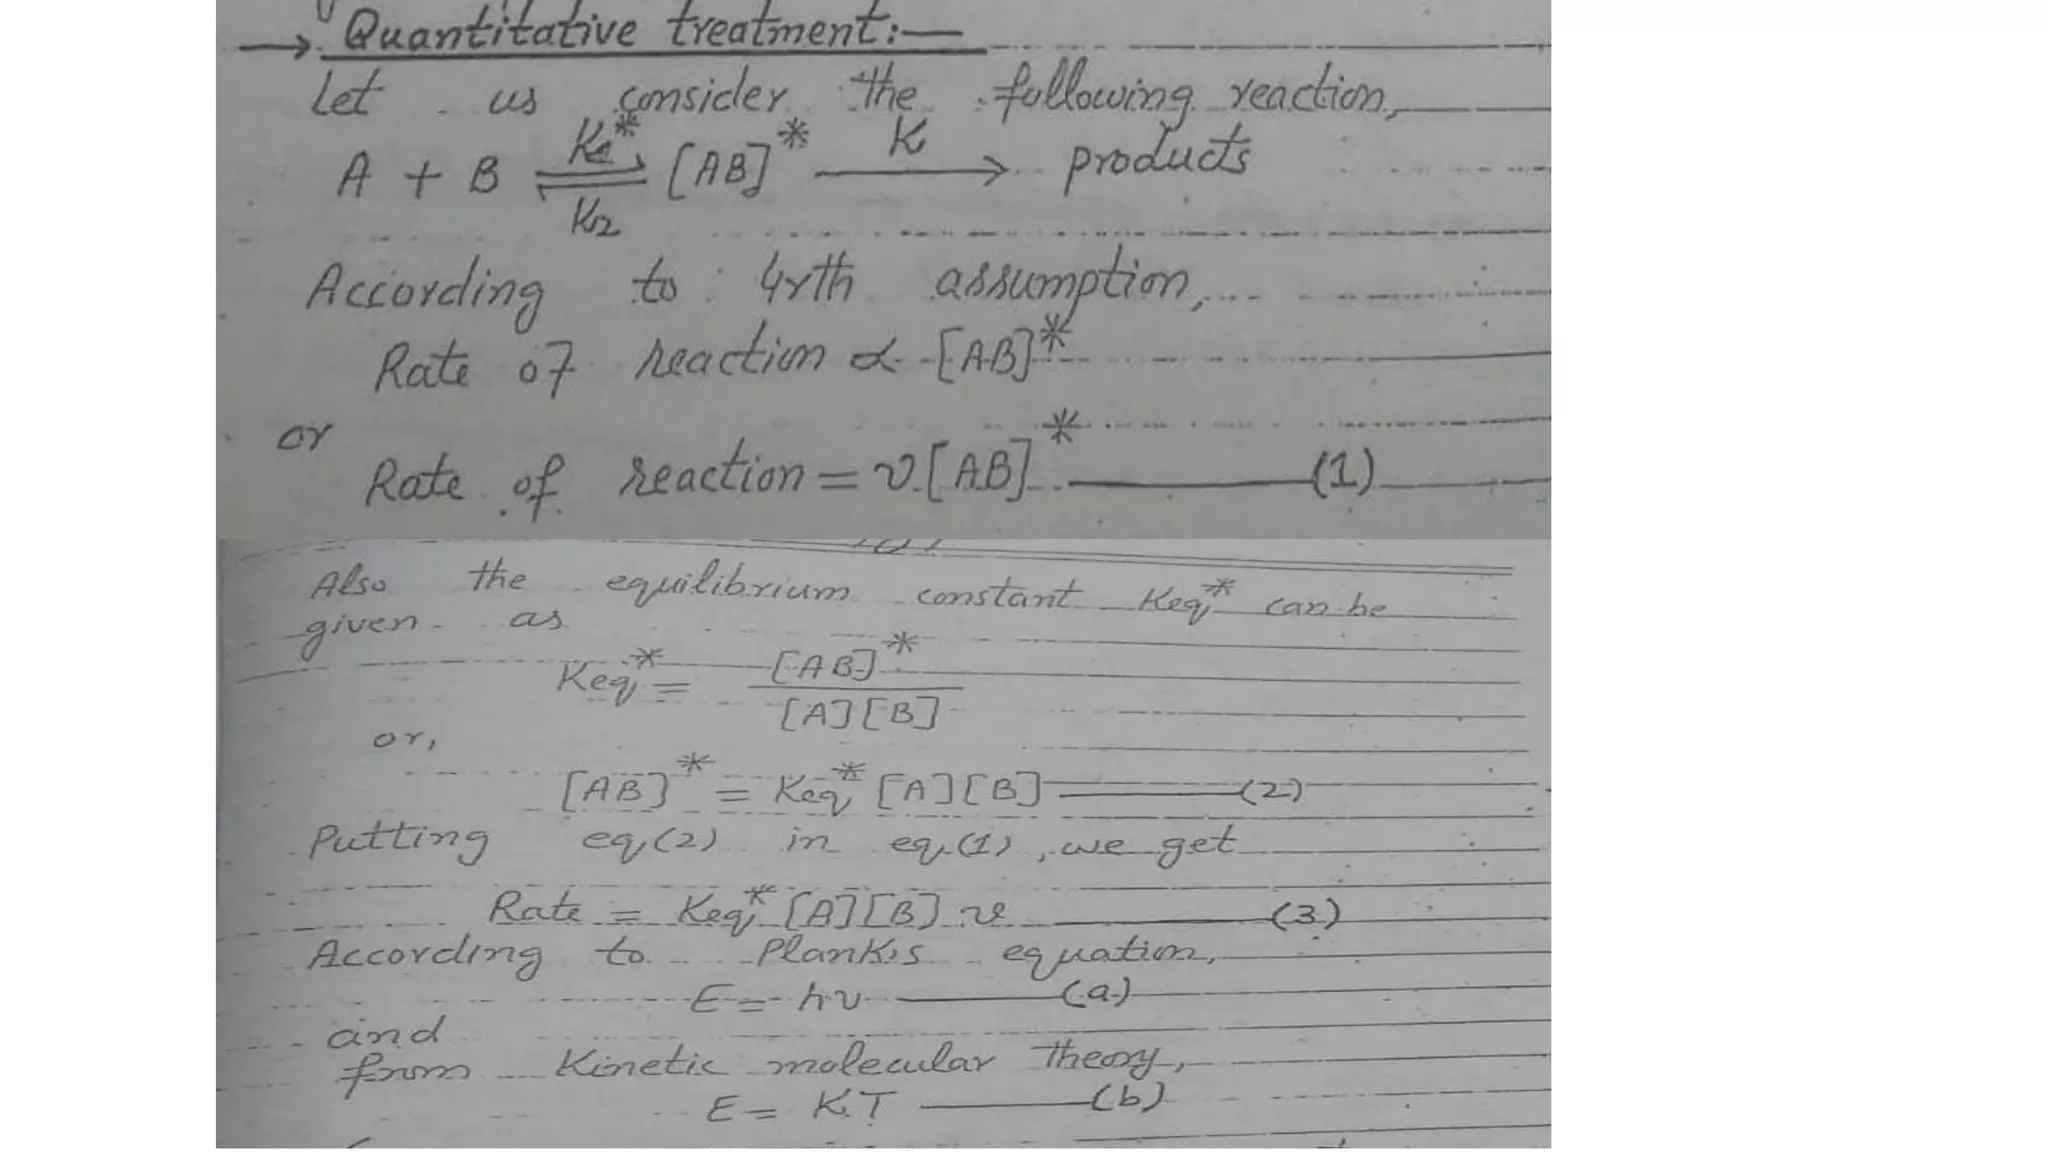 → Quantitative treatment:—
Let us consider the following reaction,
A + B ⇌ [AB]* → products
K1* K
K2
According to 4rth assumption,
Rate of reaction ∝ [AB]*
or
Rate of reaction = ν[AB]* —— (1)
Also the equilibrium constant Keq* can be
given as
Keq* = [AB]* / [A][B]
or,
[AB]* = Keq* [A][B] —— (2)
Putting eq(2) in eq.(1), we get
Rate = Keq* [A][B] ν —— (3)
According to Plank's equation,
E = hν —— (a)
and
from Kinetic molecular theory,
E = KT —— (b)